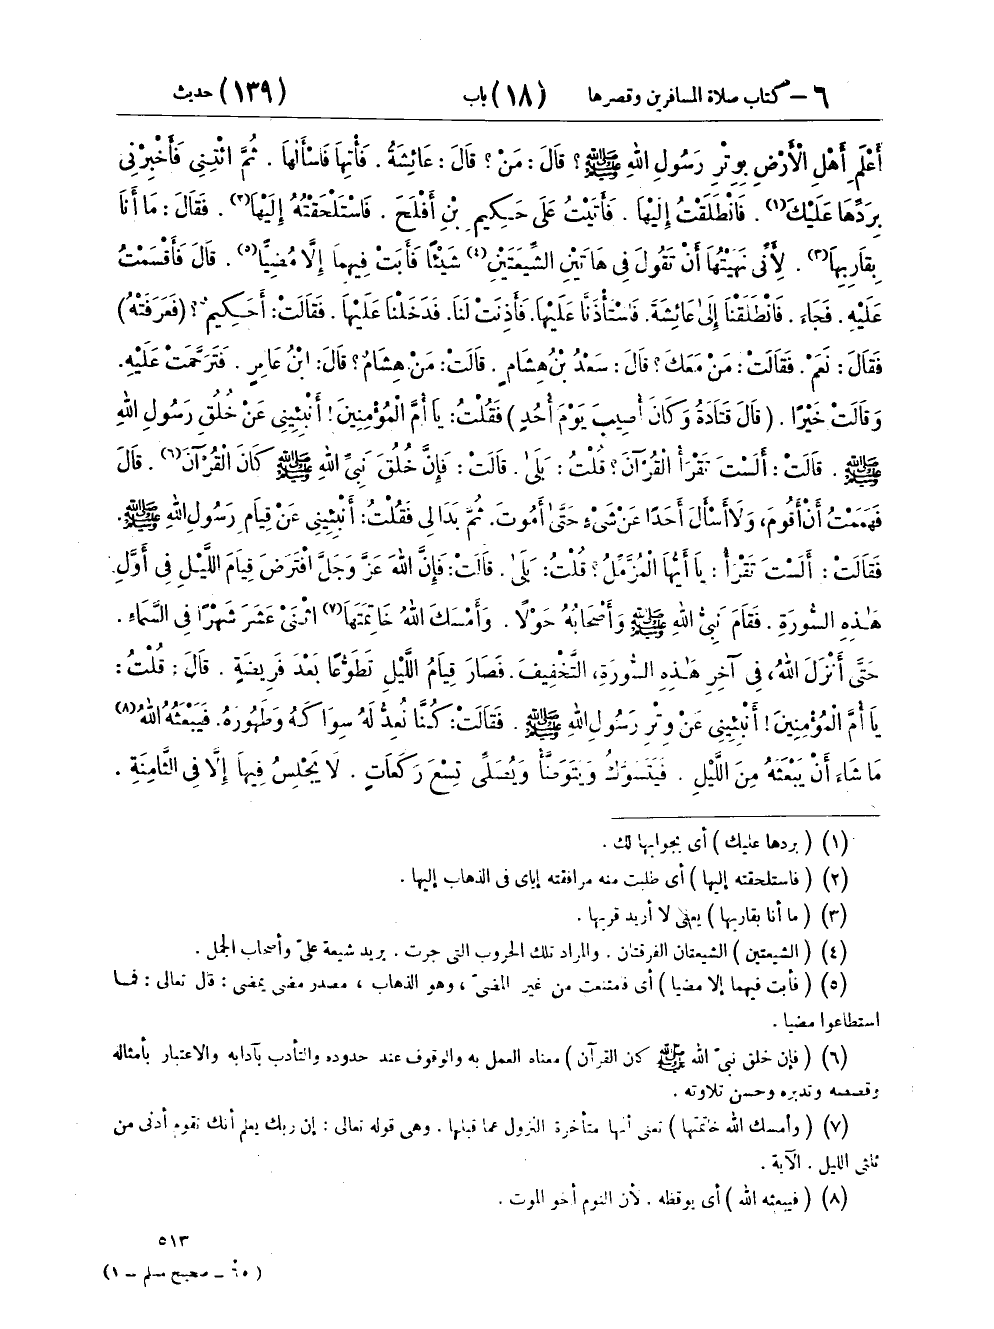 ٦ – كتاب صلاة المسافرين وقصرها (١٨) باب (١٣٩) حديث
أَعْلَمِ أَهْلِ الْأَرْضِ بِوِتْرِ رَسُولِ اللهِ ﷺ؟ قَالَ: مَنْ؟ قَالَ: عَائِشَةُ. فَأْتِهَا فَاسْأَلْهَا. ثُمَّ ائْتِنِي فَأَخْبِرْنِي
بِرَدِّهَا عَلَيْكَ(١). فَانْطَلَقْتُ إِلَيْهَا. فَأَتَيْتُ عَلَى حَكِيمِ بْنِ أَفْلَحَ. فَاسْتَلْحَقْتُهُ إِلَيْهَا(٢). فَقَالَ: مَا أَنَا
بِقَارِبِهَا(٣). لِأَنِّي نَهَيْتُهَا أَنْ تَقُولَ فِي هَاتَيْنِ الشِّيعَتَيْنِ(٤) شَيْئًا فَأَبَتْ فِيهِمَا إِلَّا مُضِيًّا(٥). قَالَ فَأَقْسَمْتُ
عَلَيْهِ. فَجَاءَ. فَانْطَلَقْنَا إِلَى عَائِشَةَ. فَاسْتَأْذَنَّا عَلَيْهَا. فَأَذِنَتْ لَنَا. فَدَخَلْنَا عَلَيْهَا. فَقَالَتْ: أَحَكِيمٌ؟ (فَعَرَفَتْهُ)
فَقَالَ: نَعَمْ. فَقَالَتْ: مَنْ مَعَكَ؟ قَالَ: سَعْدُ بْنُ هِشَامٍ. قَالَتْ: مَنْ هِشَامٌ؟ قَالَ: ابْنُ عَامِرٍ. فَتَرَحَّمَتْ عَلَيْهِ.
وَقَالَتْ خَيْرًا. (قَالَ قَتَادَةُ وَكَانَ أُصِيبَ يَوْمَ أُحُدٍ) فَقُلْتُ: يَا أُمَّ الْمُؤْمِنِينَ! أَنْبِئِينِي عَنْ خُلُقِ رَسُولِ اللهِ
ﷺ. قَالَتْ: أَلَسْتَ تَقْرَأُ الْقُرْآنَ؟ قُلْتُ: بَلَى. قَالَتْ: فَإِنَّ خُلُقَ نَبِيِّ اللهِ ﷺ كَانَ الْقُرْآنَ(٦). قَالَ
فَهَمَمْتُ أَنْ أَقُومَ، وَلَا أَسْأَلَ أَحَدًا عَنْ شَيْءٍ حَتَّى أَمُوتَ. ثُمَّ بَدَا لِي فَقُلْتُ: أَنْبِئِينِي عَنْ قِيَامِ رَسُولِ اللهِ ﷺ.
فَقَالَتْ: أَلَسْتَ تَقْرَأُ: يَا أَيُّهَا الْمُزَّمِّلُ؟ قُلْتُ: بَلَى. قَالَتْ: فَإِنَّ اللهَ عَزَّ وَجَلَّ افْتَرَضَ قِيَامَ اللَّيْلِ فِي أَوَّلِ
هَذِهِ السُّورَةِ. فَقَامَ نَبِيُّ اللهِ ﷺ وَأَصْحَابُهُ حَوْلًا. وَأَمْسَكَ اللهُ خَاتِمَتَهَا(٧) اثْنَيْ عَشَرَ شَهْرًا فِي السَّمَاءِ.
حَتَّى أَنْزَلَ اللهُ، فِي آخِرِ هَذِهِ السُّورَةِ، التَّخْفِيفَ. فَصَارَ قِيَامُ اللَّيْلِ تَطَوُّعًا بَعْدَ فَرِيضَةٍ. قَالَ: قُلْتُ:
يَا أُمَّ الْمُؤْمِنِينَ! أَنْبِئِينِي عَنْ وِتْرِ رَسُولِ اللهِ ﷺ. فَقَالَتْ: كُنَّا نُعِدُّ لَهُ سِوَاكَهُ وَطَهُورَهُ. فَيَبْعَثُهُ اللهُ(٨)
مَا شَاءَ أَنْ يَبْعَثَهُ مِنَ اللَّيْلِ. فَيَتَسَوَّكُ وَيَتَوَضَّأُ وَيُصَلِّي تِسْعَ رَكَعَاتٍ. لَا يَجْلِسُ فِيهَا إِلَّا فِي الثَّامِنَةِ.
(١) (بردها عليك) أى بجوابها لك.
(٢) (فاستلحقته إليها) أى طلبت منه مرافقته إياى فى الذهاب إليها.
(٣) (ما أنا بقاربها) يعنى لا أريد قربها.
(٤) (الشيعتين) الشيعتان الفرقتان. والمراد تلك الحروب التى جرت. يريد شيعة علىّ وأصحاب الجمل.
(٥) (فأبت فيهما إلا مضيا) أى فامتنعت من غير المضىّ، وهو الذهاب، مصدر مضى يمضى: قال تعالى: فما
استطاعوا مضيا.
(٦) (فإن خلق نبىّ الله ﷺ كان القرآن) معناه العمل به والوقوف عند حدوده والتأدب بآدابه والاعتبار بأمثاله
وقصصه وتدبره وحسن تلاوته.
(٧) (وأمسك الله خاتمتها) تعنى أنها متأخرة النزول عما قبلها. وهى قوله تعالى: إن ربك يعلم أنك تقوم أدنى من
ثلثى الليل. الآية.
(٨) (فيبعثه الله) أى يوقظه. لأن النوم أخو الموت.
٥١٣
(٦٥ – صحيح مسلم – ١)